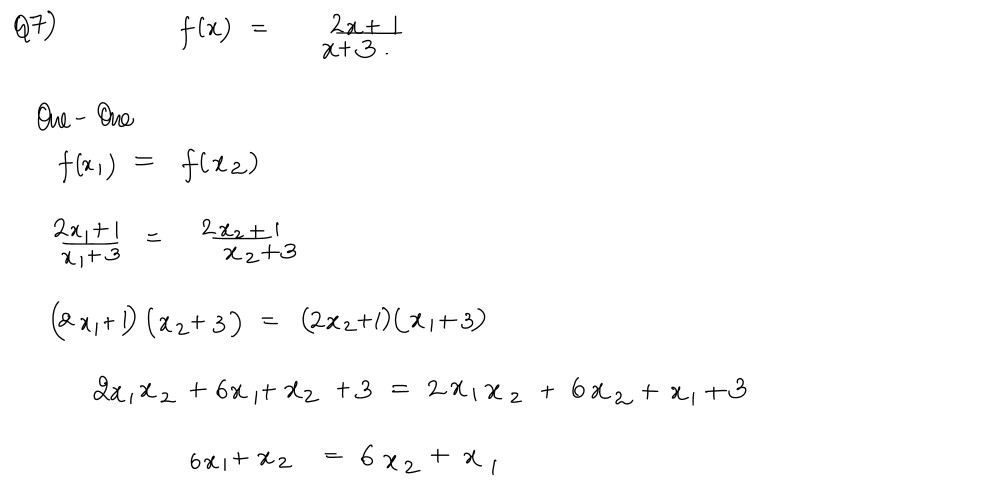 Q7) f(x) = (2x+1)/(x+3).
One-One
f(x₁) = f(x₂)
(2x₁+1)/(x₁+3) = (2x₂+1)/(x₂+3)
(2x₁+1)(x₂+3) = (2x₂+1)(x₁+3)
2x₁x₂ + 6x₁ + x₂ + 3 = 2x₁x₂ + 6x₂ + x₁ + 3
6x₁ + x₂ = 6x₂ + x₁